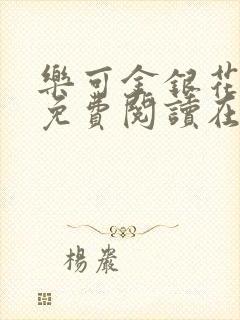 樂可金銀花
免費閱讀在
楊嚴